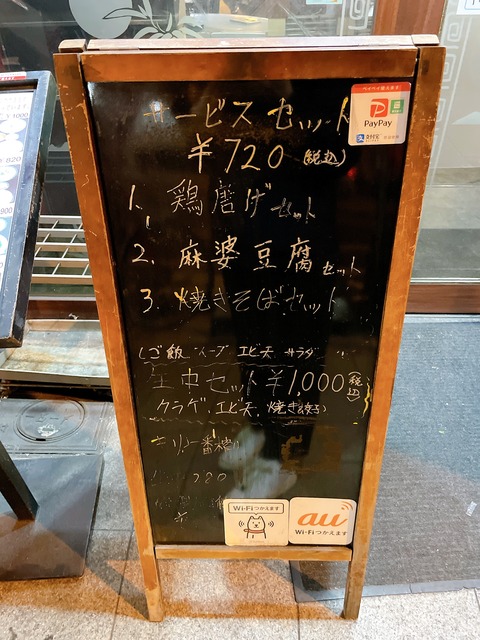 サービスセット
¥720(税込)
1. 鶏唐げセット
2. 麻婆豆腐セット
3. 焼きそばセット
(ご飯 スープ エビ天 サラダ
生中セット¥1,000(税込)
クラゲ、エビ天、焼き餃子
キリン一番搾り
780
ペイペイ使えます
PayPay
支付宝
Wi-Fiつかえます
au
Wi-Fiつかえます